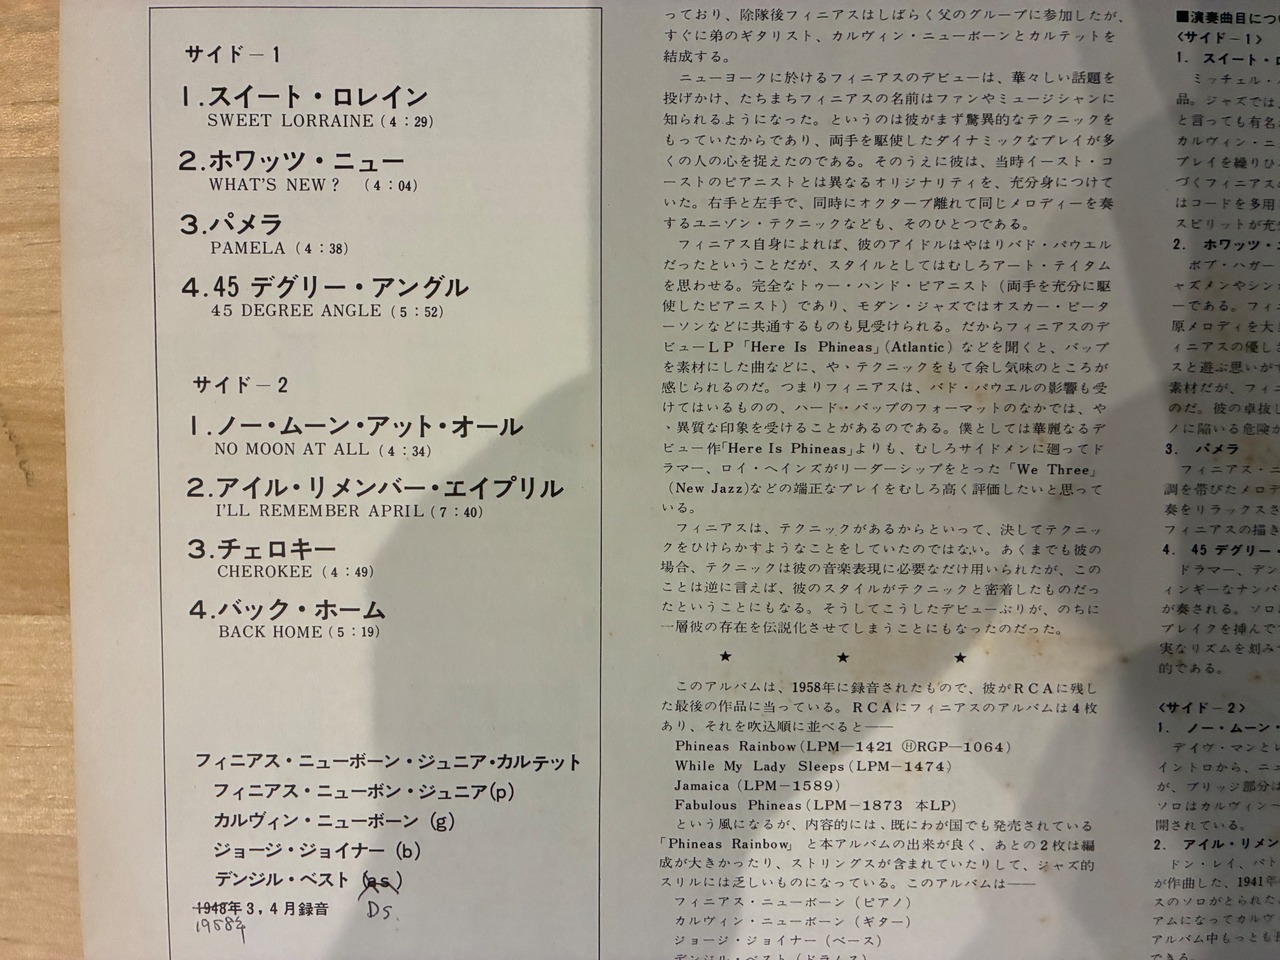 サイド－1
1.スイート・ロレイン
SWEET LORRAINE (4：29)
2.ホワッツ・ニュー
WHAT'S NEW? (4：04)
3.パメラ
PAMELA (4：38)
4.45 デグリー・アングル
45 DEGREE ANGLE (5：52)
サイド－2
1.ノー・ムーン・アット・オール
NO MOON AT ALL (4：34)
2.アイル・リメンバー・エイプリル
I'LL REMEMBER APRIL (7：40)
3.チェロキー
CHEROKEE (4：49)
4.バック・ホーム
BACK HOME (5：19)
フィニアス・ニューボーン・ジュニア・カルテット
フィニアス・ニューボン・ジュニア(p)
カルヴィン・ニューボーン (g)
ジョージ・ジョイナー (b)
デンジル・ベスト (as)
Ds.
1948年3,4月録音
1958年
っており、除隊後フィニアスはしばらく父のグループに参加したが、
すぐに弟のギタリスト、カルヴィン・ニューボーンとカルテットを
結成する。
ニューヨークに於けるフィニアスのデビューは、華々しい話題を
投げかけ、たちまちフィニアスの名前はファンやミュージシャンに
知られるようになった。というのは彼がまず驚異的なテクニックを
もっていたからであり、両手を駆使したダイナミックなプレイが多
くの人の心を捉えたのである。そのうえに彼は、当時イースト・コ
ーストのピアニストとは異なるオリジナリティを、充分身につけて
いた。右手と左手で、同時にオクターブ離れて同じメロディーを奏
するユニゾン・テクニックなども、そのひとつである。
フィニアス自身によれば、彼のアイドルはやはりバド・パウエル
だったということだが、スタイルとしてはむしろアート・テイタム
を思わせる。完全なトゥー・ハンド・ピアニスト（両手を充分に駆
使したピアニスト）であり、モダン・ジャズではオスカー・ピータ
ーソンなどに共通するものも見受けられる。だからフィニアスのデ
ビューＬＰ「Here Is Phineas」(Atlantic) などを聞くと、バップ
を素材にした曲などに、やゝテクニックをもて余し気味のところが
感じられるのだ。つまりフィニアスは、バド・パウエルの影響も受
けてはいるものの、ハード・バップのフォーマットのなかでは、や
ゝ異質な印象を受けることがあるのである。僕としては華麗なるデ
ビュー作「Here Is Phineas」よりも、むしろサイドメンに廻ってド
ラマー、ロイ・ヘインズがリーダーシップをとった「We Three」
(New Jazz)などの端正なプレイをむしろ高く評価したいと思って
いる。
フィニアスは、テクニックがあるからといって、決してテクニッ
クをひけらかすようなことをしていたのではない。あくまでも彼の
場合、テクニックは彼の音楽表現に必要なだけ用いられたが、この
ことは逆に言えば、彼のスタイルがテクニックと密着したものだっ
たということにもなる。そうしてこうしたデビューぶりが、のちに
一層彼の存在を伝説化させてしまうことにもなったのだった。
★ ★ ★
このアルバムは、1958年に録音されたもので、彼がＲＣＡに残し
た最後の作品に当っている。ＲＣＡにフィニアスのアルバムは４枚
あり、それを吹込順に並べると――
Phineas Rainbow (LPM－1421 ⒽRGP－1064)
While My Lady Sleeps (LPM－1474)
Jamaica (LPM－1589)
Fabulous Phineas (LPM－1873 本LP)
という風になるが、内容的には、既にわが国でも発売されている
「Phineas Rainbow」と本アルバムの出来が良く、あとの２枚は編
成が大きかったり、ストリングスが含まれていたりして、ジャズ的
スリルには乏しいものになっている。このアルバムは――
フィニアス・ニューボーン (ピアノ)
カルヴィン・ニューボーン (ギター)
ジョージ・ジョイナー (ベース)
デンジル・ベスト (ドラムス)
■演奏曲目につ
〈サイド－1〉
1. スイート・ロ
ミッチェル・
品。ジャズでは、
と言っても有名
カルヴィン・ニ
プレイを繰りひ
づくフィニアスの
はコードを多用
スピリットが充
2. ホワッツ・ニ
ボブ・ハガー
ャズメンやシン
ーである。フィ
原メロディを大
ィニアスの優し
スと遊ぶ思いが
素材だが、フィニ
のだ。彼の卓抜
ノに陥いる危険
3. パメラ
フィニアス・ニ
調を帯びたメロデ
奏をリラックスさ
フィニアスの描き
4. 45 デグリー・
ドラマー、デン
ィンギーなナンバ
が奏される。ソロ
ブレイクを挿んで
実なリズムを刻み
的である。
〈サイド－2〉
1. ノー・ムーン・
デイヴ・マンと
イントロから、ニ
が、ブリッジ部分は
ソロはカルヴィン
開されている。
2. アイル・リメン
ドン・レイ、パト
が作曲した、1941年
スのソロがとられた
アムになってカルヴ
アルバム中もっとも
できる。